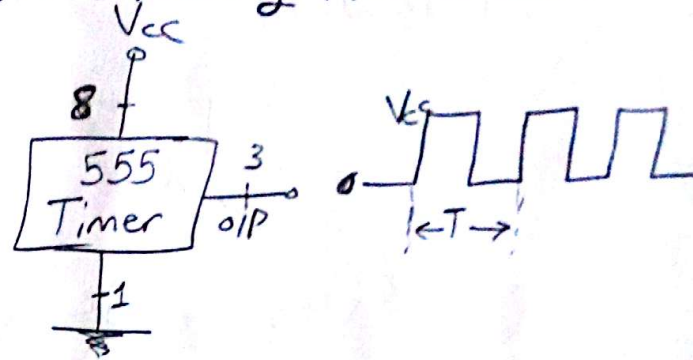 Vcc
8
555
Timer
3
o/p
1
Vcc
0
←T→